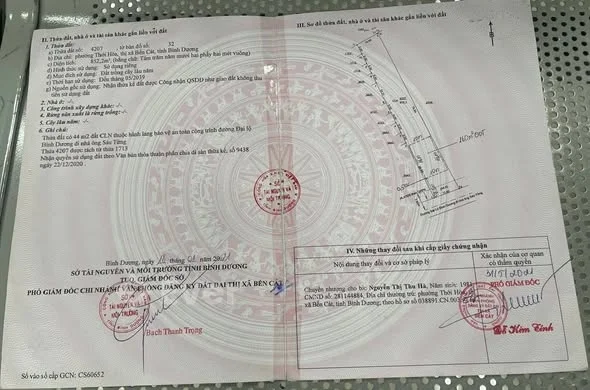 II. Thửa đất, nhà ở và tài sản khác gắn liền với đất
1. Thửa đất:
a) Thửa đất số: 4207 , tờ bản đồ số: 32
b) Địa chỉ: phường Thới Hòa, thị xã Bến Cát, tỉnh Bình Dương
c) Diện tích: 852,2m² (bằng chữ: Tám trăm năm mươi hai phẩy hai mét vuông)
d) Hình thức sử dụng: Sử dụng riêng
đ) Mục đích sử dụng: Đất trồng cây lâu năm
e) Thời hạn sử dụng: Đến tháng 05/2039
g) Nguồn gốc sử dụng: Nhận thừa kế đất được Công nhận QSDĐ như giao đất không thu
tiền sử dụng đất
2. Nhà ở: -/-
3. Công trình xây dựng khác: -/-
4. Rừng sản xuất là rừng trồng: -/-
5. Cây lâu năm: -/-
6. Ghi chú:
Thửa đất có 44 m2 đất CLN thuộc hành lang bảo vệ an toàn công trình đường Đại lộ
Bình Dương đi nhà ông Sáu Tửng
Thửa 4207 được tách từ thửa 1713
Nhận quyền sử dụng đất theo Văn bản thỏa thuận phân chia di sản thừa kế, số 9438
ngày 22/12/2020
SỞ
TÀI NGUYÊN VÀ
MÔI TRƯỜNG
Bình Dương, ngày tháng năm
SỞ TÀI NGUYÊN VÀ MÔI TRƯỜNG TỈNH BÌNH DƯƠNG
TUQ. GIÁM ĐỐC SỞ
PHÓ GIÁM ĐỐC CHI NHÁNH VĂN PHÒNG ĐĂNG KÝ ĐẤT ĐAI THỊ XÃ BẾN CÁT
Bạch Thanh Trọng
Số vào sổ cấp GCN: CS60652
III. Sơ đồ thửa đất, nhà ở và tài sản khác gắn liền với đất
IV. Những thay đổi sau khi cấp giấy chứng nhận
Nội dung thay đổi và cơ sở pháp lý
Xác nhận của cơ quan
có thẩm quyền
Chuyển nhượng cho bà: Nguyễn Thị Thu Hà, năm sinh: 1981,
CMND số: 281144884, Địa chỉ thường trú: phường Thới Hòa, thị
xã Bến Cát, tỉnh Bình Dương; theo hồ sơ số 038891.CN.003
PHÓ GIÁM ĐỐC